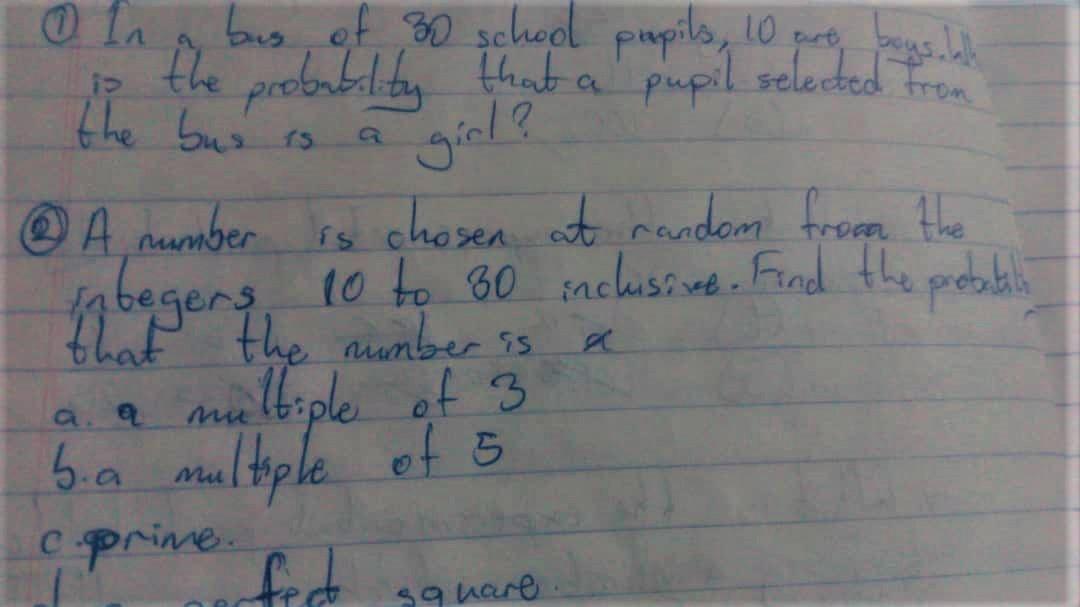 ① In a bus of 30 school pupils, 10 are boys.
is the probability that a pupil selected from
the bus is a girl?
② A number is chosen at random from the
integers 10 to 30 inclusive. Find the
that the number is a
a. a multiple of 3
b. a multiple of 5
c. prime.
square.